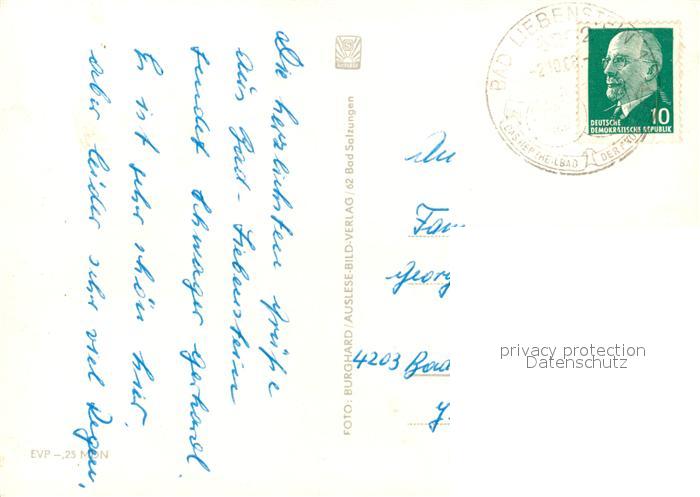 Die herzlichsten Grüße
aus Bad-Liebenstein
sendet Schwager Gerhard.
Es ist sehr schön hier,
aber leider sehr viel Regen.
EVP –,25 MDN
FOTO: BURGHARD/AUSLESE-BILD-VERLAG/62 Bad Salzungen
BAD LIEBENSTEIN
-2.10.68.-
DAS HERZHEILBAD
DER
DEUTSCHE
DEMOKRATISCHE REPUBLIK
10
An
Fam
Georg
4203 Bad
privacy protection
Datenschutz